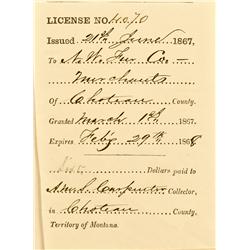 LICENSE NO. 4070
Issued 21th June 1867,
To N.W. Fur Co. -
Merchants
Of Choteau County.
Granted March 1st 1867.
Expires Feb'y 29th 1868
Dollars paid to
Collector,
in Choteau County,
Territory of Montana.